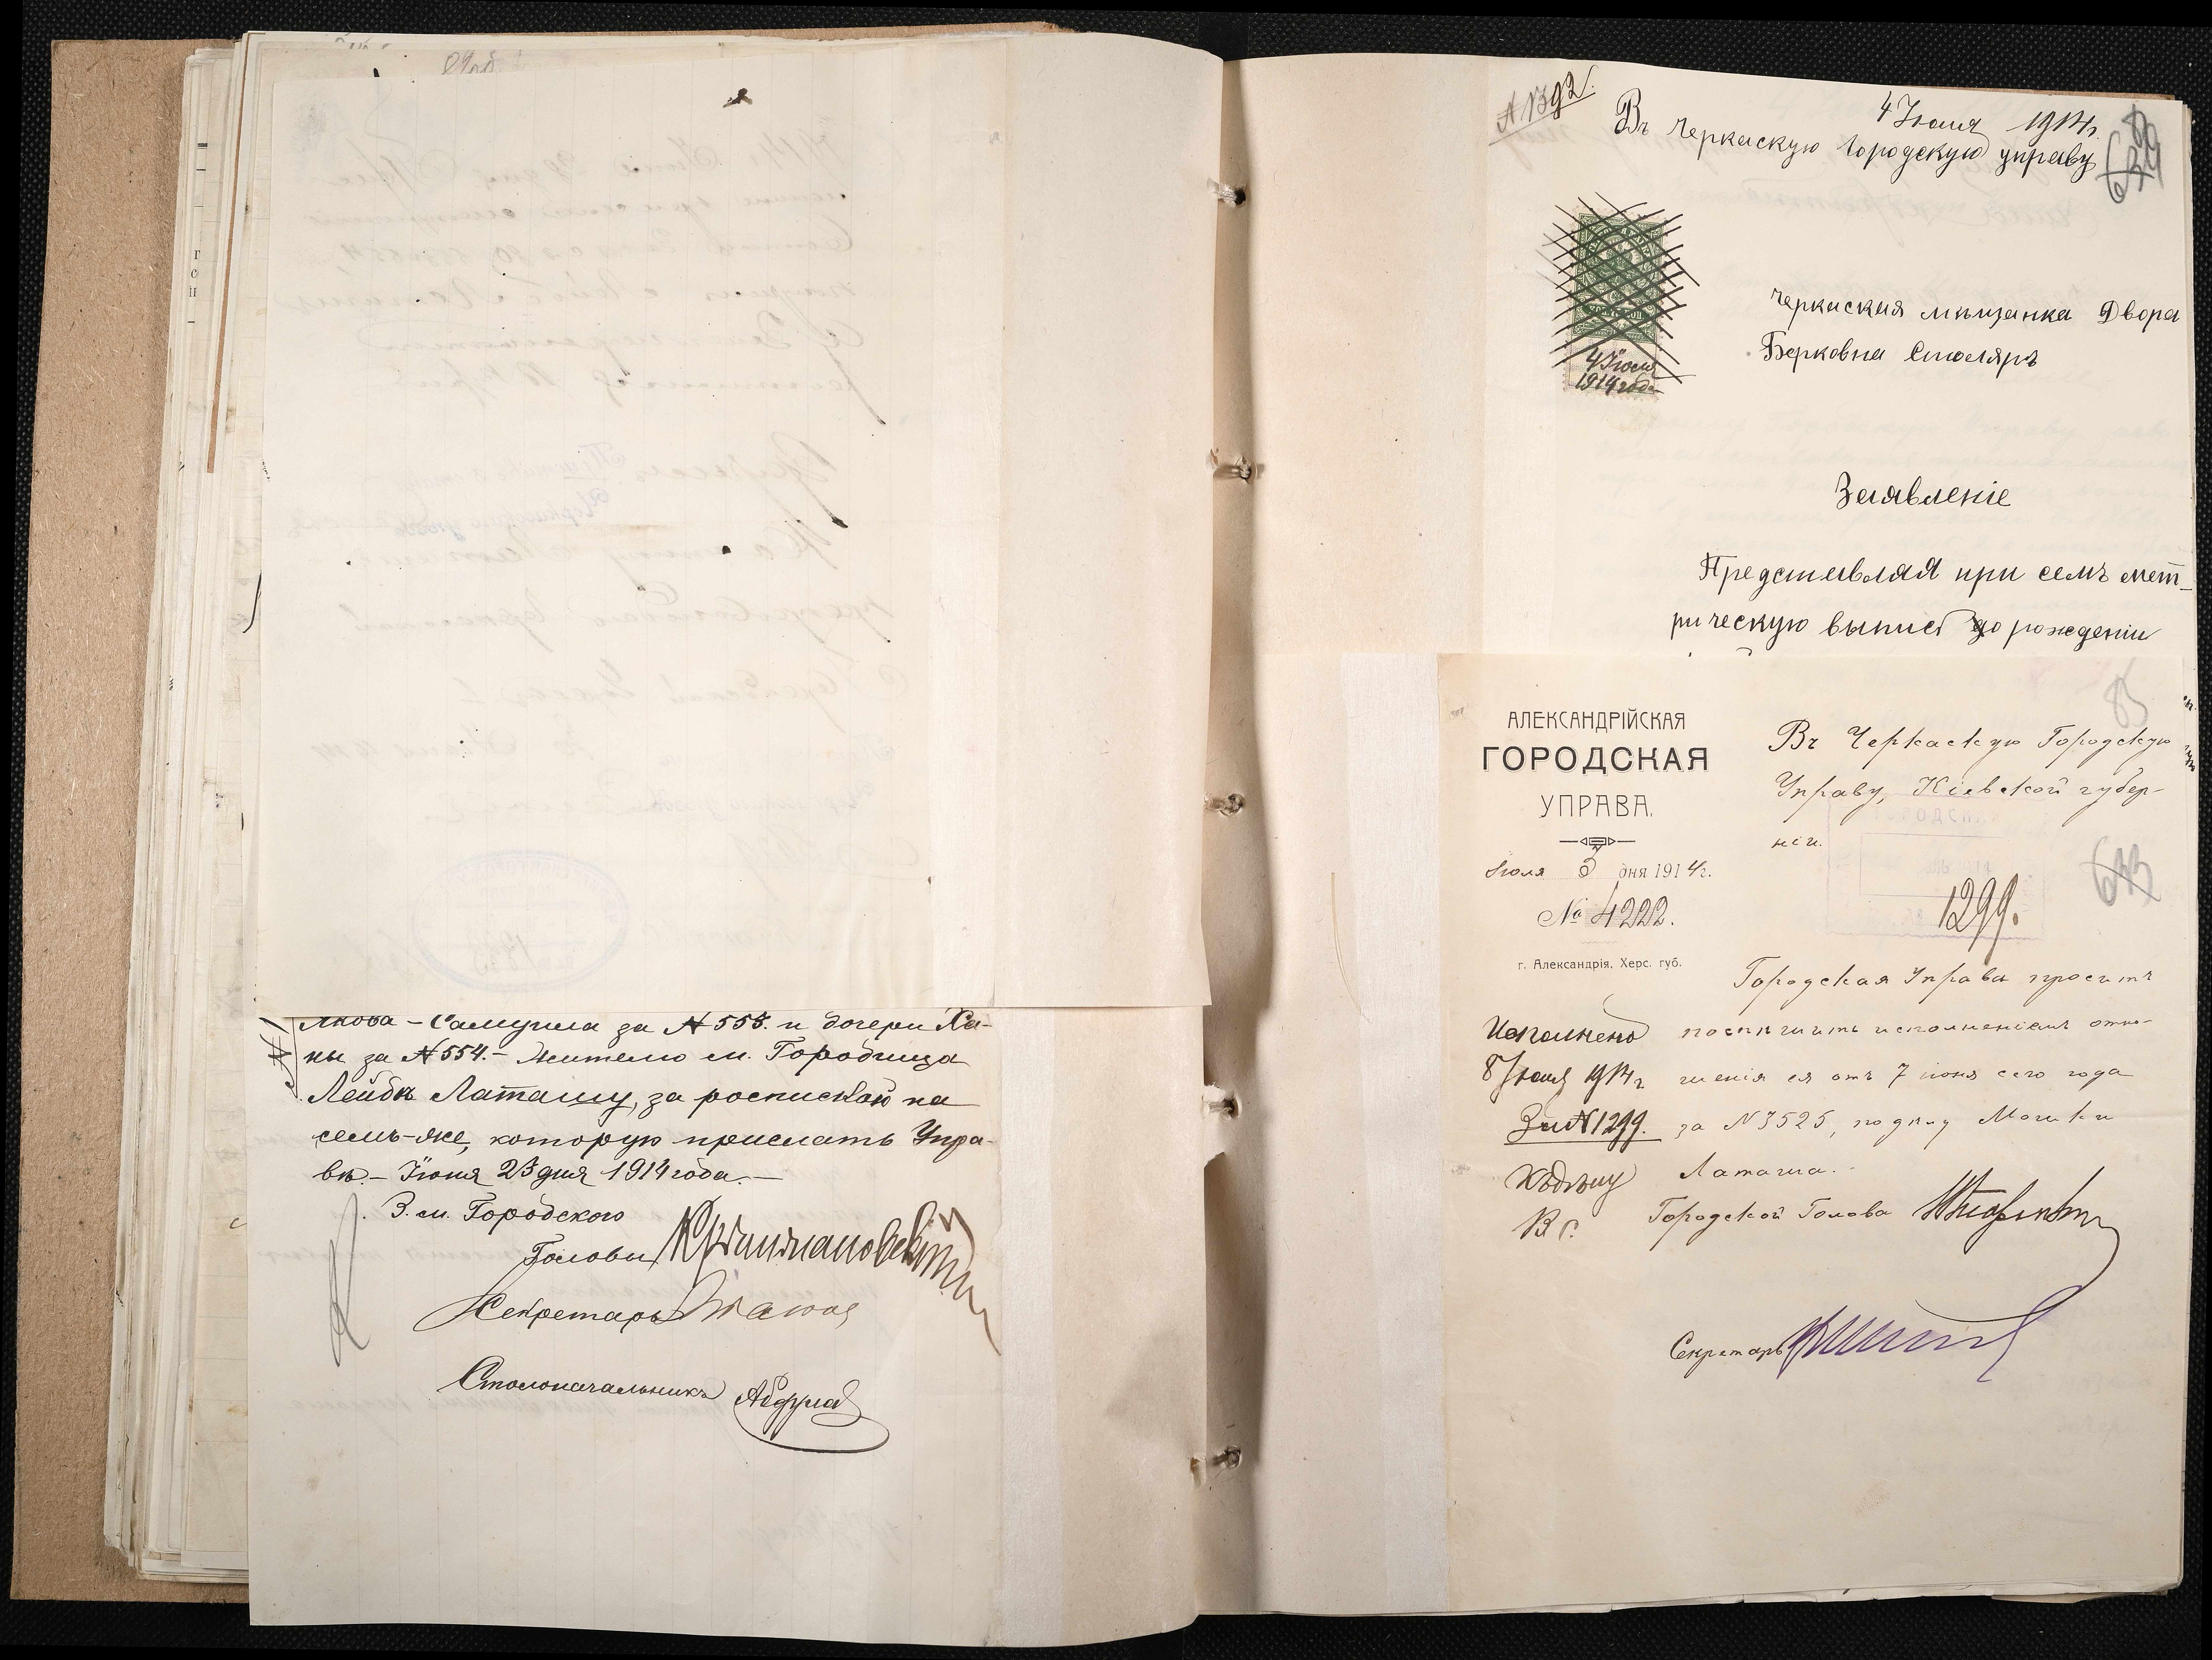 лкова – Самуила за № 553. и дочери Ха-
ны за № 554. – жителю м. Городища
Лейбѣ Латашу, за роспиской на
семъ-же, которую прислать Упра-
вѣ. – Іюня 23 дня 1914 года. –
З. м. Городского
Головы
Секретарь
Столоначальникъ
А №392.
4 Іюля 1914 г.
Въ Черкаскую городскую управу
4 Іюля
1914 года
черкаская мѣщанка Двора
Берковна Столяръ
Заявленіе
Представляя при семъ мет-
рическую выпись о рожденіи
85
АЛЕКСАНДРІЙСКАЯ
ГОРОДСКАЯ
УПРАВА.
Іюля 3 дня 1914 г.
№ 4222.
г. Александрія, Херс. губ.
Въ Черкаскую Городскую
Управу, Кіевской губер-
ніи.
633
1299.
Городская Управа проситъ
поспѣшить исполненіемъ отно-
шенія ея отъ 7 іюня сего года
за № 3525, по дѣлу Мошки
Латаша.
Городской Голова
Секретарь
Исполнено
8 Іюля 1914 г.
За № 1299.